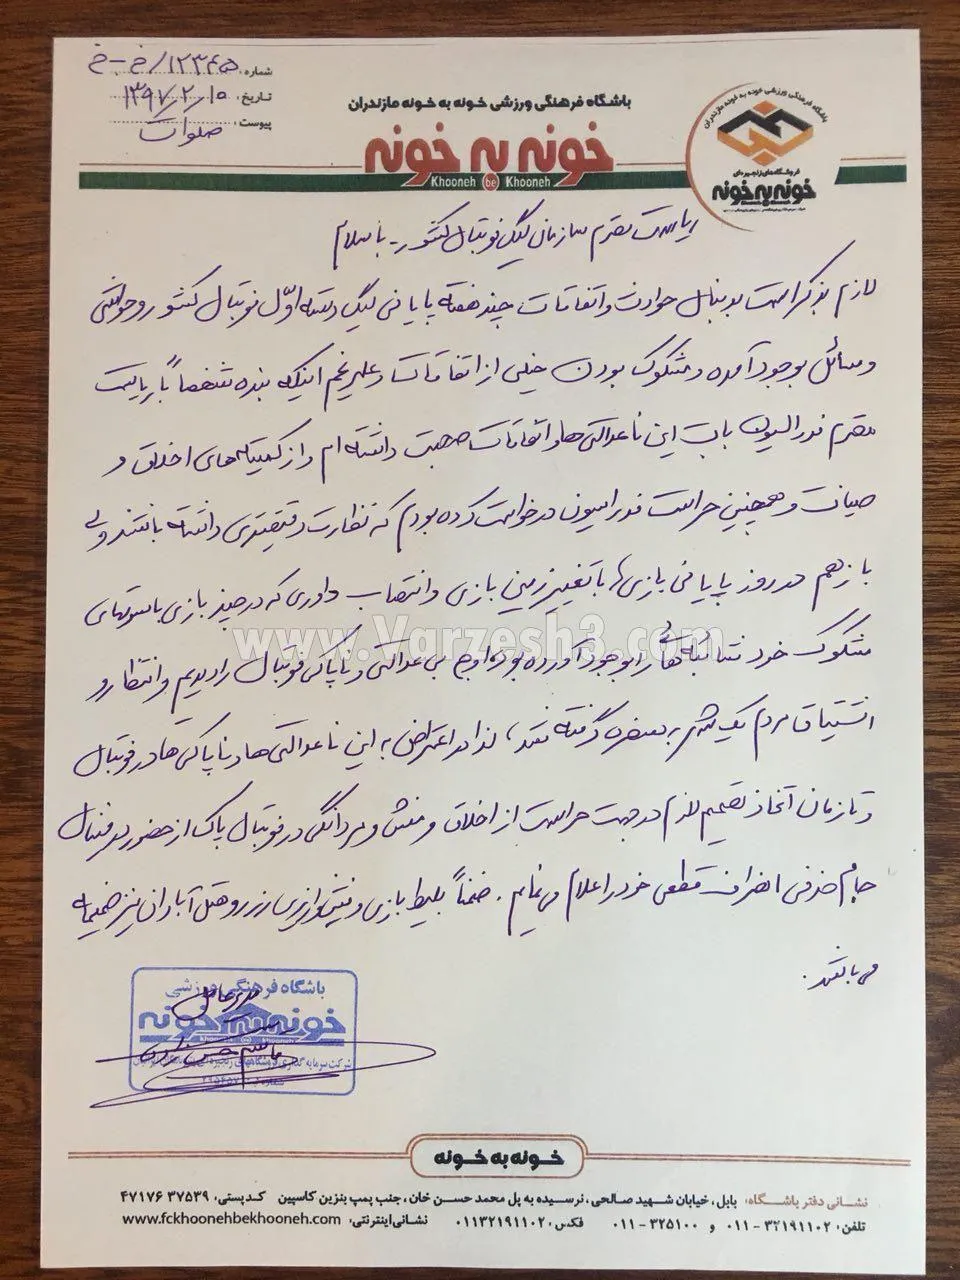 شماره: ۱۲۳۴۵/خ-خ
تاریخ: ۱۳۹۷/۲/۱۰
پیوست: صلوات
باشگاه فرهنگی ورزشی خونه به خونه مازندران
خونه به خونه
Khooneh be Khooneh
باشگاه فرهنگی ورزشی خونه به خونه مازندران
فروشگاه‌های زنجیره‌ای
خونه به خونه
ریاست محترم سازمان لیگ فوتبال کشور - با سلام
لازم بذکر است بدنبال حوادث و اتفاقات چند هفته پایانی لیگ دسته اوّل فوتبال کشور و حواشی
و مسائل بوجود آمده و مشکوک بودن خیلی از اتفاقات و علیرغم اینکه بنده شخصاً با ریاست
محترم فدراسیون بابت این ناعدالتی ها و اتفاقات صحبت داشته ام و از کمیته های اخلاق و
صیانت و همچنین حراست فدراسیون درخواست کرده بودم که نظارت دقیقتری داشته باشند ولی
باز هم در روز پایانی بازی‌ها با تغییر زمین بازی و انتصاب داوری که در چند بازی با سوتهای
مشکوک خود شائبه هائی را بوجود آورده بود اوج بی عدالتی و ناپاکی فوتبال را دیدیم و انتظار و
اشتیاق مردم یک شهر به سخره گرفته شد، لذا در اعتراض به این ناعدالتی ها و ناپاکی ها در فوتبال
و تا زمان اتخاذ تصمیم لازم در جهت حراست از اخلاق و منش و مردانگی در فوتبال پاک از حضور در فینال
جام حذفی انصراف قطعی خود را اعلام می نمایم. ضمناً بلیط بازی و فیش واریزی رزرو هتل آبادان نیز ضمیمه
می باشد.
www.Varzesh3.com
باشگاه فرهنگی ورزشی
خونه به خونه
مدیرعامل
خونه به خونه
نشانی دفتر باشگاه: بابل، خیابان شهید صالحی، نرسیده به پل محمد حسن خان، جنب پمپ بنزین کاسپین کدپستی: ۴۷۱۷۶۳۷۵۳۹
تلفن: ۳۲۱۹۱۱۰۲-۰۱۱ و ۳۲۵۱۰۰-۰۱۱ فکس: ۰۱۱۳۲۱۹۱۱۰۲ نشانی اینترنتی: www.fckhoonehbekhooneh.com